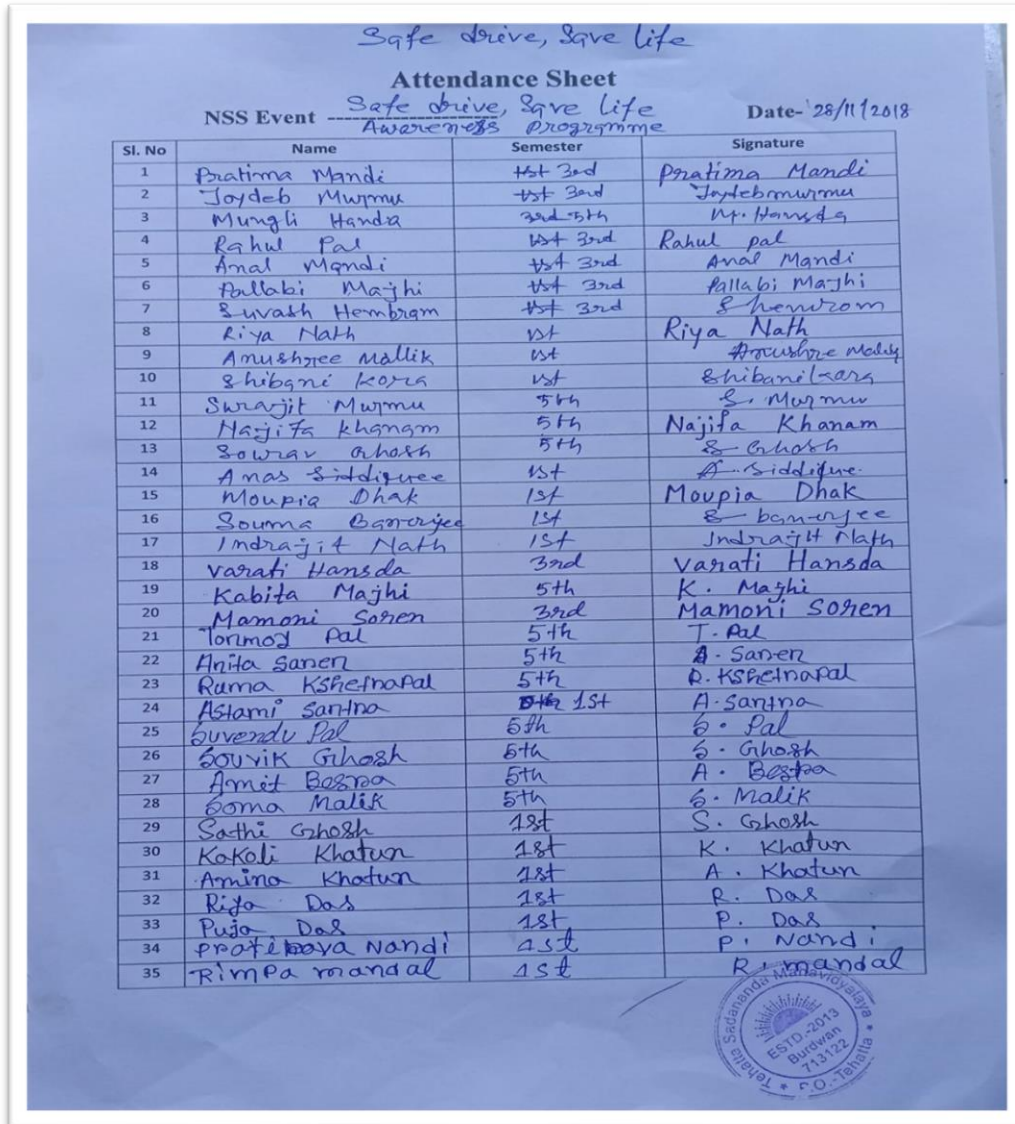 Safe drive, Save life
Attendance Sheet
NSS Event Safe drive, Save life Date- 28/11/2018
Awareness Programme
Sl. No Name Semester Signature
1 Pratima Mandi 1st 3rd Pratima Mandi
2 Joydeb Murmu 1st 3rd Joydebmurmu
3 Mungli Handa 3rd 5th M. Hansda
4 Rahul Pal 1st 3rd Rahul pal
5 Anal Mandi 1st 3rd Anal Mandi
6 Pallabi Majhi 1st 3rd Pallabi Majhi
7 Suvash Hembram 1st 3rd Shemrom
8 Riya Nath 1st Riya Nath
9 Anushree Mallik 1st
10 Shibani Kora 1st
11 Surajit Murmu 5th S. Murmu
12 Najifa khanam 5th Najifa Khanam
13 Sourav Ghosh 5th S Ghosh
14 Anas Siddiquee 1st A. Siddique
15 Moupia Dhak 1st Moupia Dhak
16 Souma Banerjee 1st S banerjee
17 Indrajit Nath 1st Indrajit Nath
18 Varati Hansda 3rd Varati Hansda
19 Kabita Majhi 5th K. Majhi
20 Mamoni Soren 3rd Mamoni Soren
21 Tonmoy Pal 5th T. Pal
22 Anita Saren 5th A. Saren
23 Ruma Kshetrapal 5th R. Kshetrapal
24 Astami Santra 1st A. Santra
25 Suvendu Pal 5th S. Pal
26 Souvik Ghosh 5th S. Ghosh
27 Amit Besra 5th A. Besra
28 Soma Malik 5th S. Malik
29 Sathi Ghosh 1st S. Ghosh
30 Kokoli Khatun 1st K. Khatun
31 Amina Khatun 1st A. Khatun
32 Riya Das 1st R. Das
33 Puja Das 1st P. Das
34 Nandi 1st P. Nandi
35 Rimpa mandal 1st R. mandal
Tehatta Sadananda Mahavidyalaya
ESTD.-2013
Burdwan
713122
P.O.-Tehatta